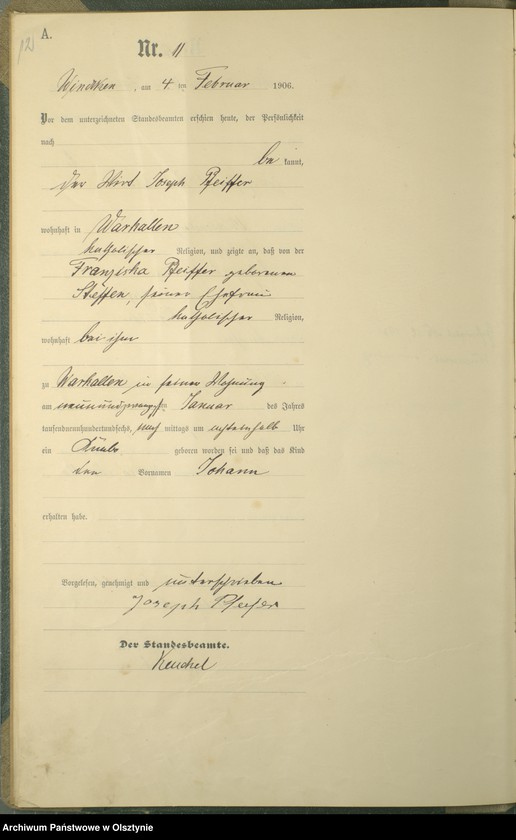 12
A.
Nr. 11
Windtken, am 4 ten Februar 1906.
Vor dem unterzeichneten Standesbeamten erschien heute, der Persönlichkeit
nach
be kannt,
der Wirt Joseph Pfeiffer
wohnhaft in Warkallen
katholischer Religion, und zeigte an, daß von der
Franziska Pfeiffer geborenen
Steffen, seiner Ehefrau
katholischer Religion,
wohnhaft bei ihm
zu Warkallen in seiner Wohnung
am neunundzwanzigsten Januar des Jahres
tausendneunhundertundsechs, nach mittags um Uhr
ein Knabe geboren worden sei und daß das Kind
den Vornamen Johann
erhalten habe.
Vorgelesen, genehmigt und unterschrieben
Joseph Pfeifer
Der Standesbeamte.
Keuchel
Archiwum Państwowe w Olsztynie